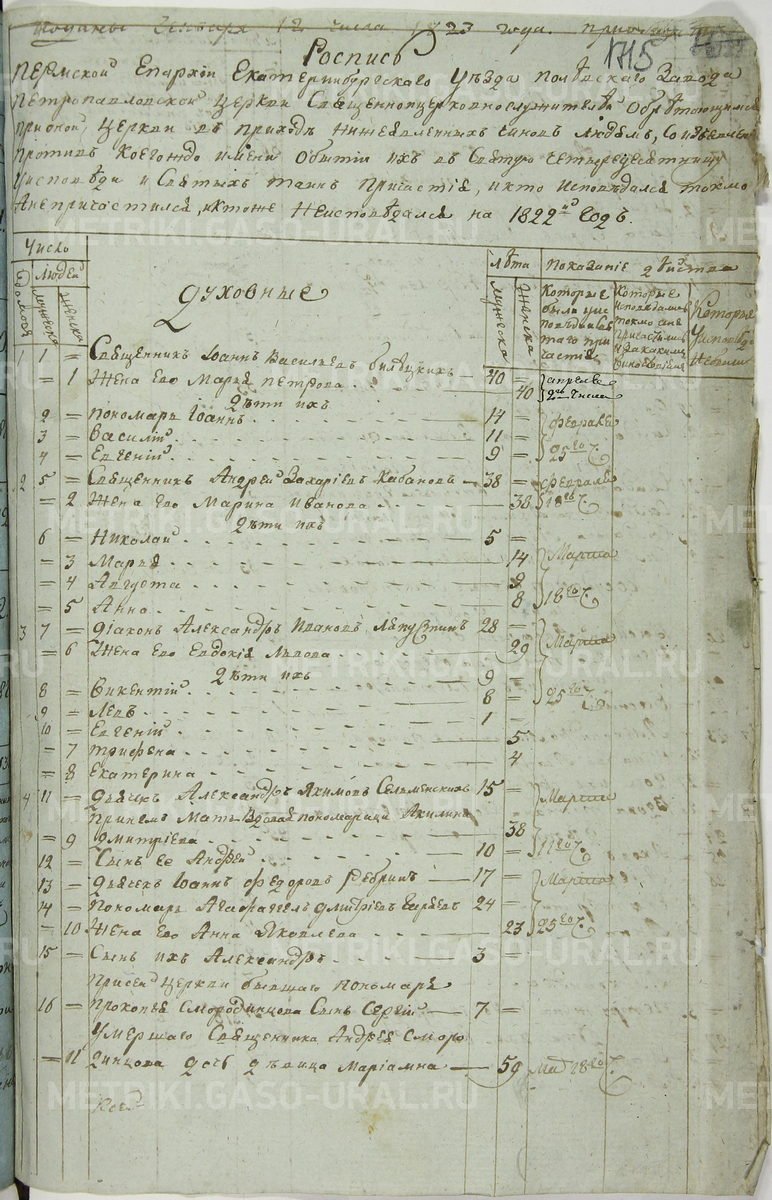 Поданы Генваря 12 числа 1823 года.
1715
Роспись
Пермской Епархіи Екатеринбургскаго Уѣзда Полѣвскаго Завода
Петропавловской Церкви Священноцерковнослужителей Обрѣтающимся
при оной Церкви въ приходѣ нижеявленныхъ чиновъ людямъ, со изъявленіемъ
противъ коегождо имени о бытіи ихъ въ Святую четыредесятницу
у исповѣди и святыхъ таинъ причастія, и кто исповѣдался токмо
а не причастился, и кто же не исповѣдался на 1822й годъ.
Число лѣта Показаніе дѣйства
Домовъ людей мужеска женска
Духовные
мужеска женска Которые были у исповѣди и святаго причастія Которые исповѣдались токмо а не причастились и за какимъ виновеніемъ Которые у исповѣди не были
1 1 = Священникъ Іоаннъ Васильевъ 40 = апреля
= 1 Жена Его Марья Петрова 40 2го числа
Дѣти ихъ
2 = Пономарь Іоаннъ 14 = февраля
3 = Василій 11 =
4 = Евгеній 9 = 25го ч.
2 5 = Священникъ Андрей Захаріевъ Кабановъ 38 = февраля
= 2 Жена Его Марина Иванова 38 18го ч.
Дѣти ихъ
6 = Николай 5 =
= 3 Марья 14 Марта
= 4 Августа 9
= 5 Анна 8 18го ч.
3 7 = Діаконъ Александръ Ивановъ Ляпустинъ 28 = Марта
= 6 Жена Его Евдокія Львова 29
Дѣти ихъ 9 =
8 = Викентій 8 = 25го ч.
9 = Левъ 1 =
10 = Евгеній 5
= 7 Трифена 4
= 8 Екатерина
4 11 = Дьячекъ Александръ Якимовъ 15 = Марта
При немъ Мать вдовая пономарица Акилина
= 9 Дмитріева 38
12 = Сынъ ее Андрей 10 = 11го ч.
13 = Дьячекъ Іоаннъ Федоровъ Ребринъ 17 = Марта
14 = Пономарь Агафангелъ Дмитріевъ 24 =
= 10 Жена Его Анна Яковлева 23 25го ч.
15 = Сынъ ихъ Александръ 3 =
При сей Церкви бывшаго пономаря
16 = Прокопья Смородинцова Сынъ Сергій 7 =
Умершаго Священника Андрея Сморо
= 11 динцова дочь дѣвица Маріамна 59 Мая 28го ч.
METRIKI.GASO-URAL.RU